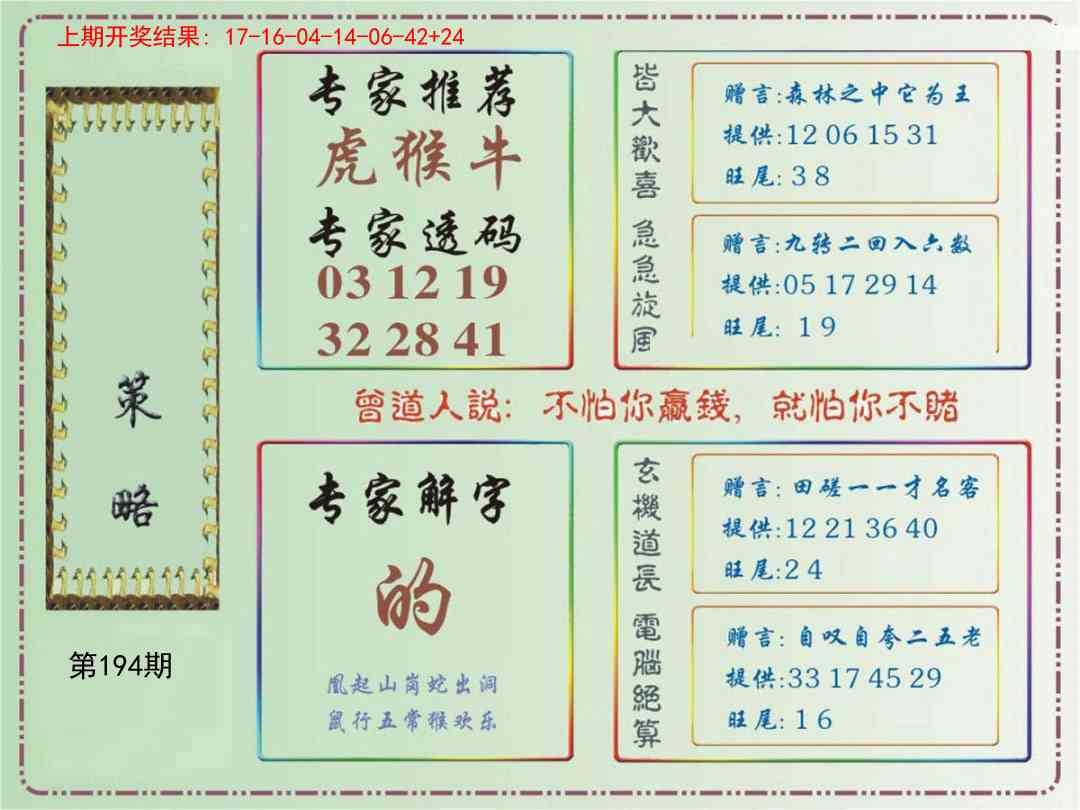 上期开奖结果：17-16-04-14-06-42+24
策略
第194期
专家推荐
虎猴牛
专家透码
03 12 19
32 28 41
皆大歡喜
赠言:森林之中它为王
提供:12 06 15 31
旺尾: 3 8
急急旋風
赠言:九转二回入六数
提供:05 17 29 14
旺尾: 1 9
曾道人説：不怕你贏錢，就怕你不賭
专家解字
的
凰起山岗蛇出洞
鼠行五常猴欢乐
玄機道長
赠言: 田磋一一才名客
提供:12 21 36 40
旺尾:2 4
電腦絕算
赠言: 自叹自夸二五老
提供:33 17 45 29
旺尾: 1 6